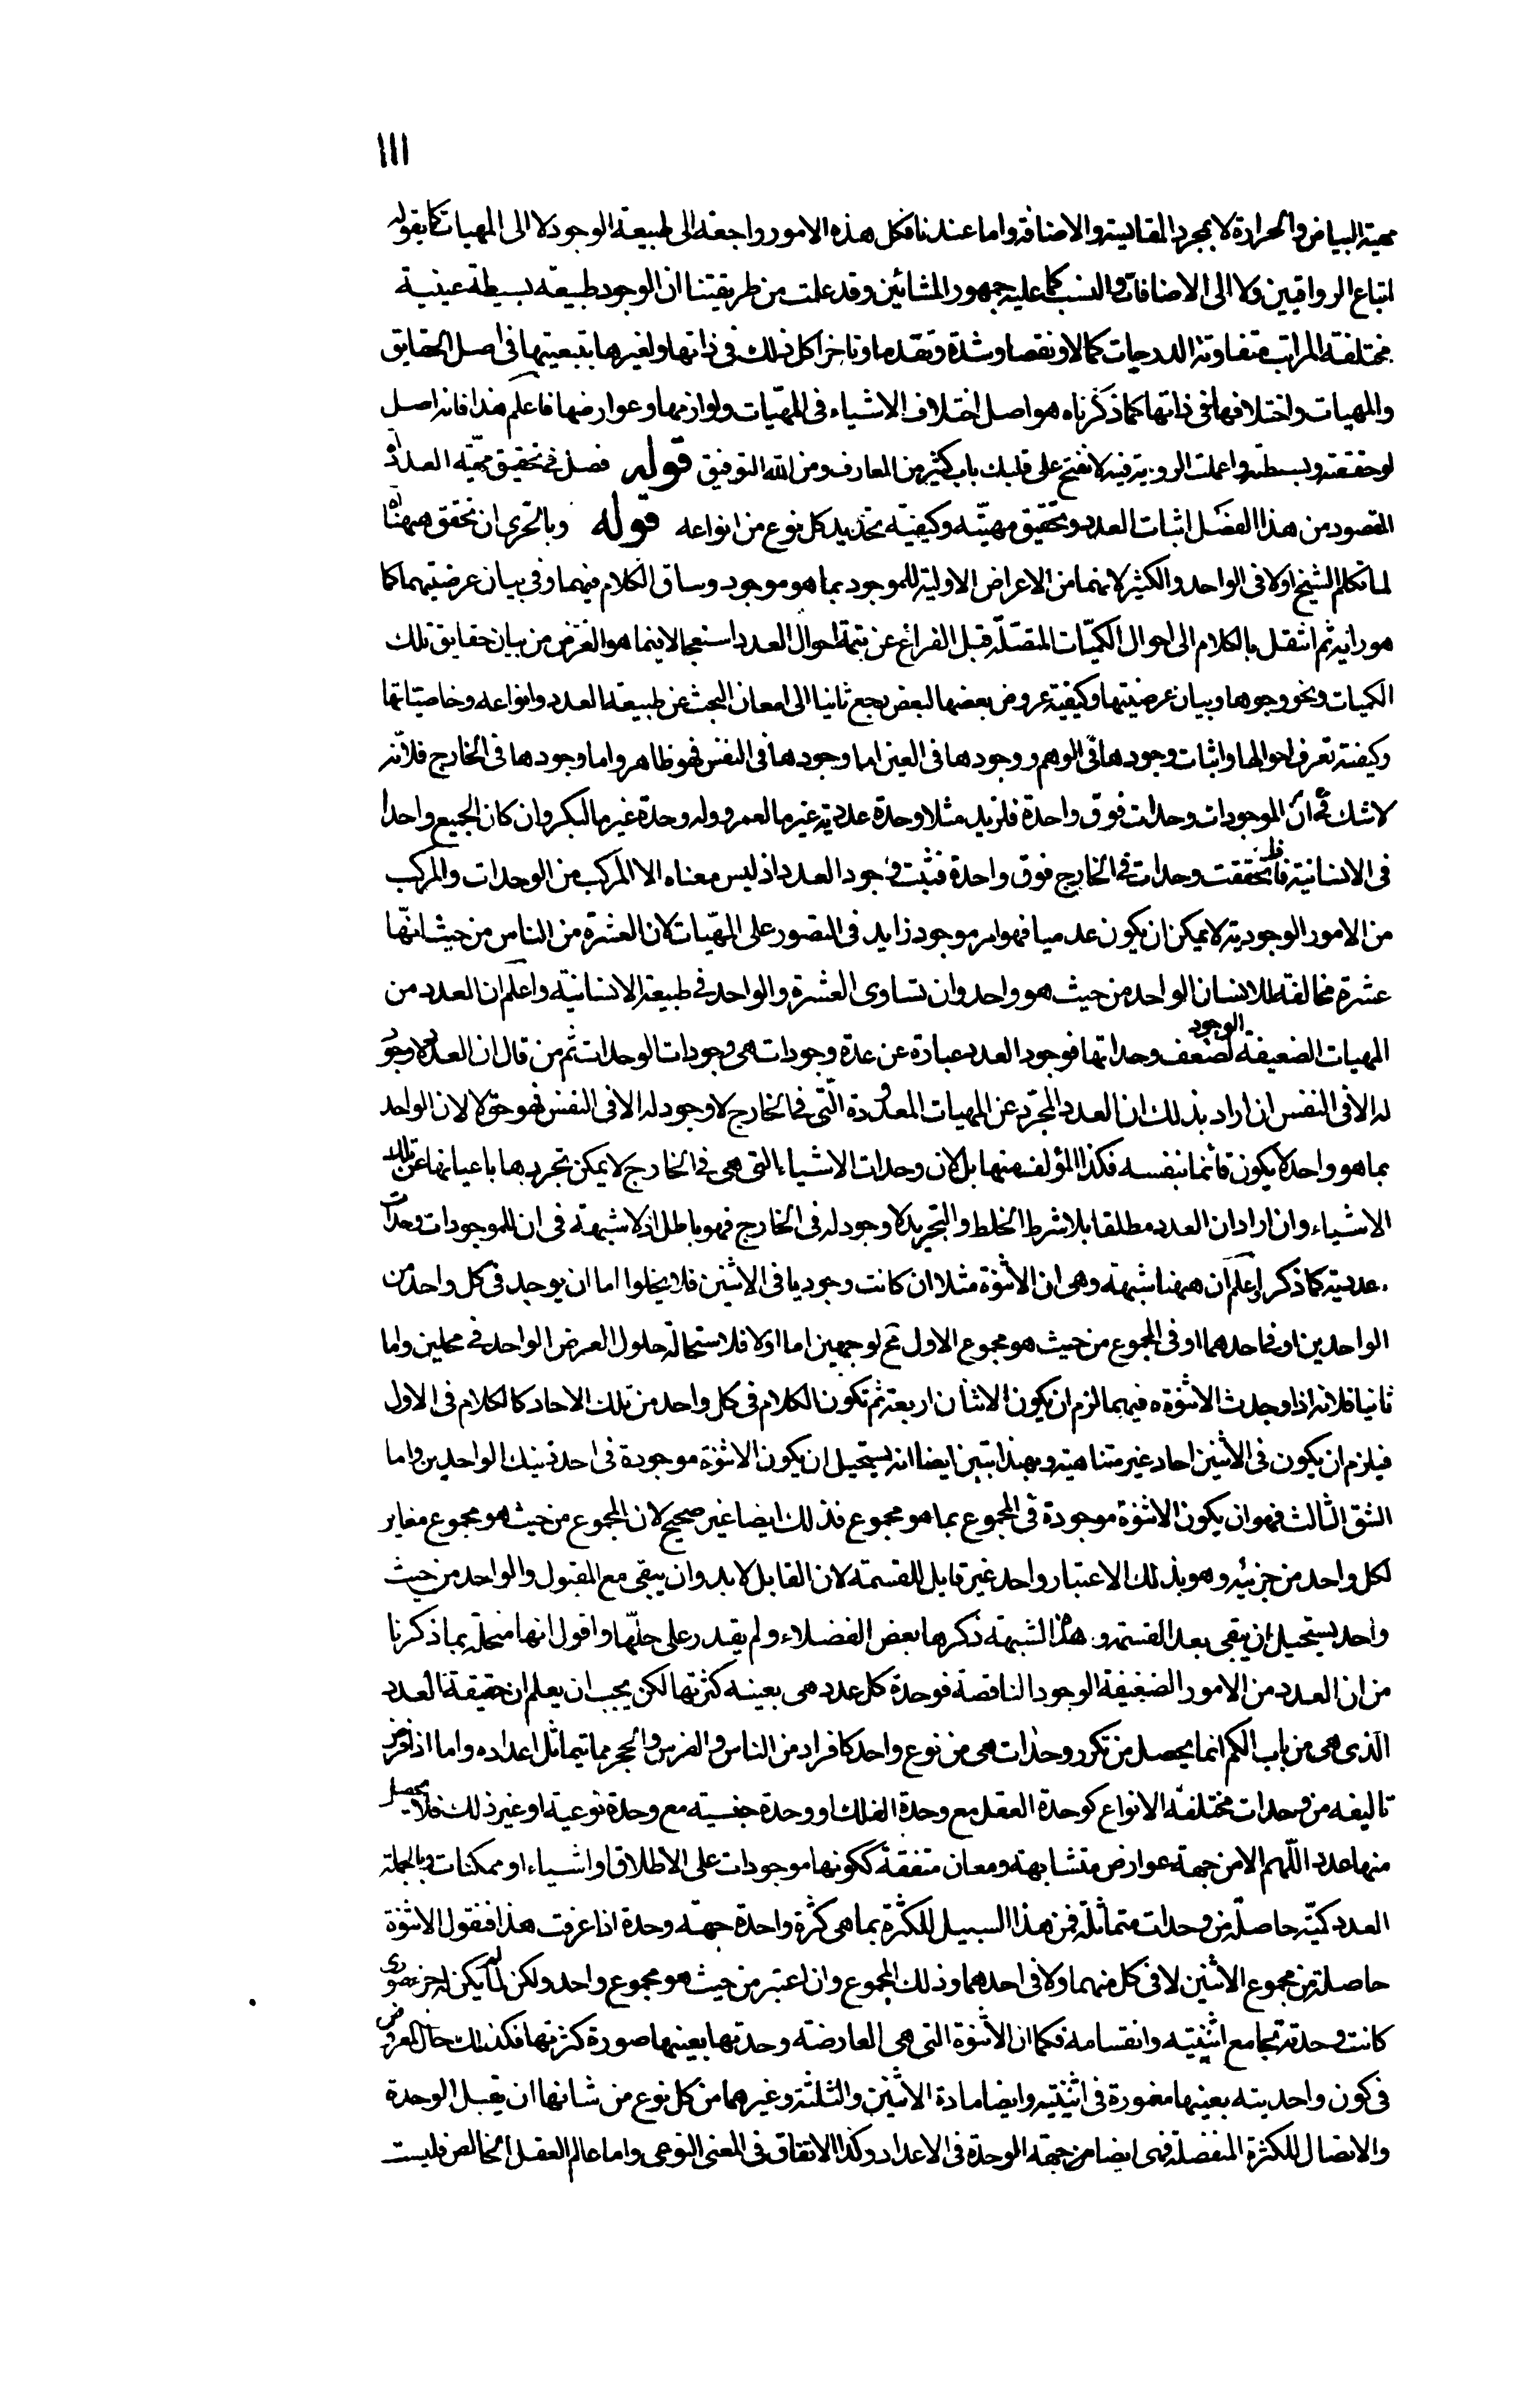 ١١١
مهية البياض والحرارة لا بمجرد المقايسة والاضافة واما عندنا فكل هذه الامور راجعة الى طبيعة الوجود لا الى المهيات كما يقوله
اتباع الرواقيين ولا الى الاضافات والنسب كما عليه جمهور المشائين وقد علمت من طريقتنا ان الوجود طبيعة بسيطة عينية
مختلفة المراتب متفاوتة الدرجات كمالا ونقصا وشدة وتقدما وتاخرا كل ذلك في ذاتها ولغيرها بتبعيتها في اصل الحقايق
والمهيات واختلافها في ذاتها كما ذكرناه هو اصل اختلاف الاشياء في المهيّات ولوازمها وعوارضها فاعلم هذا فانه اصل
لو حققته وبسطته واعملت الروية فيه لانفتح على قلبك باب كثير من المعارف ومن الله التوفيق قوله فصل في تحقيق مهيّة العدد اه
المقصود من هذا الفصل اثبات العدد وتحقيق مهيّته وكيفيّة تحديد كل نوع من انواعه قوله وبالحرى ان نحقق ههنا اه
لما تكلم الشيخ اولا في الواحد والكثير لانهما من الاعراض الاولية للموجود بما هو موجود وساق الكلام فيهما وفي بيان عرضيتهما كما
هو دابه ثم انتقل بالكلام الى احوال الكميّات المتصلة قبل الفراغ عن تتمة احوال العدد استعجالا فيما هو الغرض من بيان حقايق تلك
الكميات ونحو وجوها وبيان عرضيتها وكيفية عروض بعضها لبعض رجع ثانيا الى امعان البحث عن طبيعة العدد وانواعه وخاصياتها
وكيفية تعرف احوالها واثبات وجودها في الوهم ووجودها في العين اما وجودها في النفس فهو ظاهر واما وجودها في الخارج فلانّه
لا شك في انّ الموجودات وحدات فوق واحدة فلزيد مثلا وحدة عددية غير ما لعمرو وله وحدة غير ما لبكر وان كان الجميع واحدا
في الانسانية فاذا تحققت وحدات في الخارج فوق واحدة فثبت وجود العدد اذ ليس معناه الا المركب من الوحدات والمركب
من الامور الوجودية لا يمكن ان يكون عدميا فهو امر موجود زايد في التصور على المهيّات لان العشرة من الناس من حيث انها
عشرة مخالفة للانسان الواحد من حيث هو واحد وان تساوى العشرة والواحد في طبيعة الانسانية واعلم ان العدد من
المهيات الضعيفة الوجود لضعف وحداتها فوجود العدد عبارة عن عدة وجودات هي وجودات الوحدات ثم من قال ان العدد لا وجود
له الا في النفس ان اراد بذلك ان العدد المجرّد عن المهيات المعدودة الّتى في الخارج لا وجود له الا في النفس فهو حق لا لان الواحد
بما هو واحد لا يكون قائما بنفسه فكذا المؤلف منها بل لان وحدات الاشياء التى هي في الخارج لا يمكن تجردها باعيانها عن تلك
الاشياء وان اراد ان العدد مطلقا بلا شرط الخلط والتجريد لا وجود له في الخارج فهو باطل اذ لا شبهة في ان للموجودات وحدات
عددية كما ذكر اعلم ان ههنا شبهة وهي ان الاثنوة مثلا ان كانت وجوديا في الاثنين فلا يخلوا اما ان يوجد في كل واحد من
الواحدين او في احدهما او في المجموع من حيث هو مجموع الاول مح لوجهين اما اولا فلاستحالة حلول العرض الواحد في محلين واما
ثانيا فلانه اذا وجدت الاثنوة فيهما لزم ان يكون الاثنان اربعة ثم تكون الكلام في كل واحد من تلك الاحاد كالكلام في الاول
فيلزم ان يكون في الاثنين احاد غير متناهية وبهذا تبين ايضا انه يستحيل ان يكون الاثنوة موجودة في احد ذينك الواحدين واما
الشق الثالث فهو ان يكون الاثنوة موجودة في المجموع بما هو مجموع فذلك ايضا غير صحيح لان المجموع من حيث هو مجموع مغاير
لكل واحد من جزئيه وهو بذلك الاعتبار واحد غير قابل للقسمة لان القابل لا بد وان يبقى مع المقبول والواحد من حيث
واحد يستحيل ان يبقى بعد القسمة وهذه الشبهة ذكرها بعض الفضلاء ولم يقدر على حلّها واقول انها منحلة بما ذكرنا
من ان العدد من الامور الضعيفة الوجود الناقصة فوحدة كل عدد هي بعينه كثرتها لكن يجب ان يعلم ان حقيقة العدد
الّذى هي من باب الكم انما يحصل من تكرر وحدات هي من نوع واحد كافراد من الناس والفرس والحجر مما يتماثل اعداده واما اذا فرض
تاليفه من وحدات مختلفة الانواع كوحدة العقل مع وحدة الفلك او وحدة جنسية مع وحدة نوعية او غير ذلك فلا يحصل
منها عدد اللّهم الا من جهة عوارض متشابهة ومعان متفقة ككونها موجودات على الاطلاق او اشياء او ممكنات وبالجملة
العدد كميّة حاصلة من وحدات متماثلة فمن هذا السبيل للكثرة بما هي كثرة واحدة جهة وحدة اذا عرفت هذا فنقول الاثنوة
حاصلة من مجموع الاثنين لا في كل منهما ولا في احدهما وذلك المجموع وان اعتبر من حيث هو مجموع واحد ولكن لما لم يكن له جزء صورى
كانت وحدته تجامع اثنينيته وانقسامه فكما ان الاثنوة التى هي العارضة وحدتها بعينها صورة كثرتها فكذلك حال المعروض
في كون واحديته بعينها مغمورة في اثنينيته وايضا مادة الاثنين والثلثة وغيرهما من كل نوع من شانها ان يقبل الوحدة
والاتصال للكثرة المنفصلة فهي ايضا من جهة الوحدة في الاعداد وكذا الاتفاق في المعنى النوعى واما عالم العقل الخالص فليست